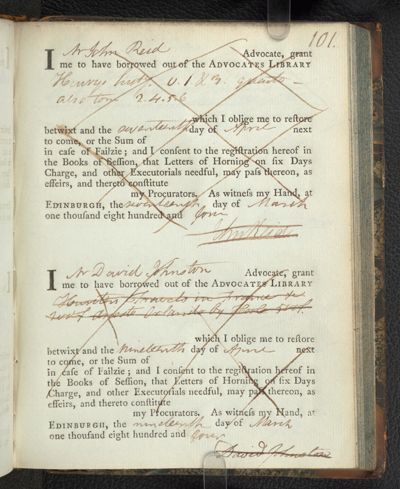 101.
I Mr John Reid Advocate, grant
me to have borrowed out of the ADVOCATES LIBRARY
Henrys hist. v. 1 & 3. quarto
also Tom 2.4.5.6
which I oblige me to reſtore
betwixt and the seventeenth day of April next
to come, or the Sum of
in caſe of Failzie; and I conſent to the regiſtration hereof in
the Books of Seſſion, that Letters of Horning on ſix Days
Charge, and other Executorials needful, may paſs thereon, as
effeirs, and thereto conſtitute
my Procurators. As witneſs my Hand, at
EDINBURGH, the seventeenth day of March
one thouſand eight hundred and four
John Reid
I Mr David Johnston Advocate, grant
me to have borrowed out of the ADVOCATES LIBRARY
Travels in France &
Orlando by
which I oblige me to reſtore
betwixt and the nineteenth day of April next
to come, or the Sum of
in caſe of Failzie; and I conſent to the regiſtration hereof in
the Books of Seſſion, that Letters of Horning on ſix Days
Charge, and other Executorials needful, may paſs thereon, as
effeirs, and thereto conſtitute
my Procurators. As witneſs my Hand, at
EDINBURGH, the nineteenth day of March
one thouſand eight hundred and four
David Johnston